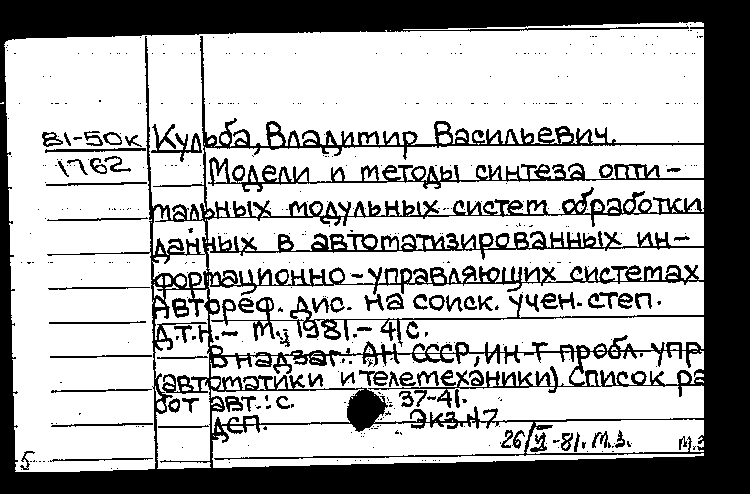 81-50к Кульба, Владимир Васильевич.
1762 Модели и методы синтеза опти-
мальных модульных систем обработки
данных в автоматизированных ин-
формационно-управляющих системах
Автореф. дис. на соиск. учен. степ.
д.т.н. – М., 1981. – 41 с.
В надзаг.: АН СССР, Ин-т пробл. упр
(автоматики и телемеханики). Список ра
бот авт.: с. 37-41.
ДСП. Экз. №7.
26/VI-81. М.З. м.з
5